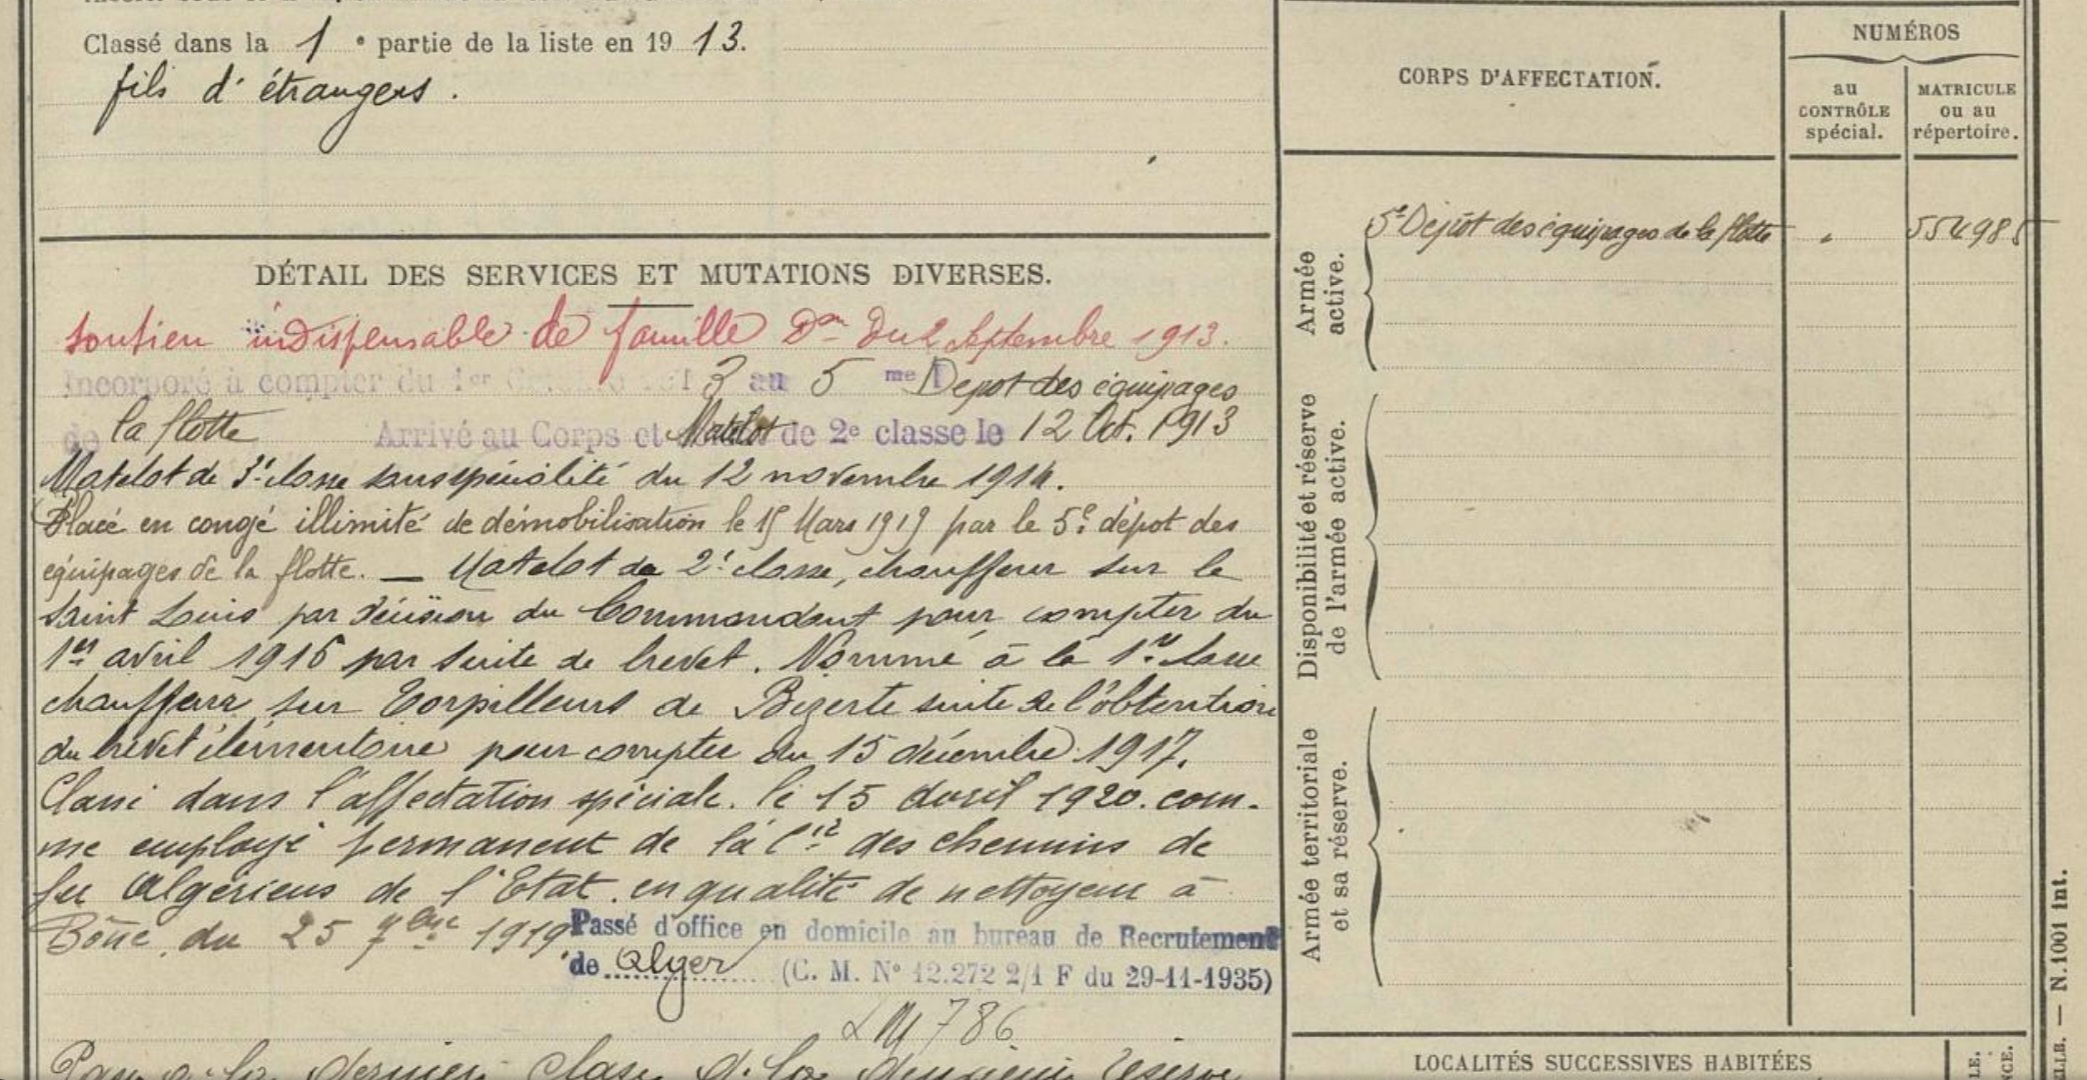 Classé dans la 1 e partie de la liste en 19 13.
fils d'étrangers.
DÉTAIL DES SERVICES ET MUTATIONS DIVERSES.
soutien indispensable de famille Don du 2 Septembre 1913.
Incorporé à compter du 1er 3 au 5 me Dépot des équipages
de la flotte Arrivé au Corps et Matelot de 2e classe le 12 Oct. 1913
Matelot de 3e classe sans spécialité du 12 novembre 1914.
Placé en congé illimité de démobilisation le 15 Mars 1919 par le 5e dépot des
équipages de la flotte. — Matelot de 2e classe, chauffeur sur le
Saint Louis par décision du Commandant pour compter du
1er avril 1916 par suite de brevet. Nommé à la 1re classe
chauffeur sur Torpilleurs de Bizerte suite de l'obtention
du brevet élémentaire pour compter du 15 décembre 1917.
Classé dans l'affectation spéciale. le 15 avril 1920. com-
me employé permanent de la Cie des chemins de
fer algériens de l'Etat. en qualité de nettoyeur à
Bône, du 25 7bre 1919. Passé d'office en domicile au bureau de Recrutement
de Alger (C. M. N° 12.272 2/1 F du 29-11-1935)
786
CORPS D'AFFECTATION.
NUMÉROS
au
CONTRÔLE
spécial.
MATRICULE
ou au
répertoire.
Armée
active.
5e Dépôt des équipages de la flotte " 554985
Disponibilité et réserve
de l'armée active.
Armée territoriale
et sa réserve.
LOCALITÉS SUCCESSIVES HABITÉES
N. 1001 int.